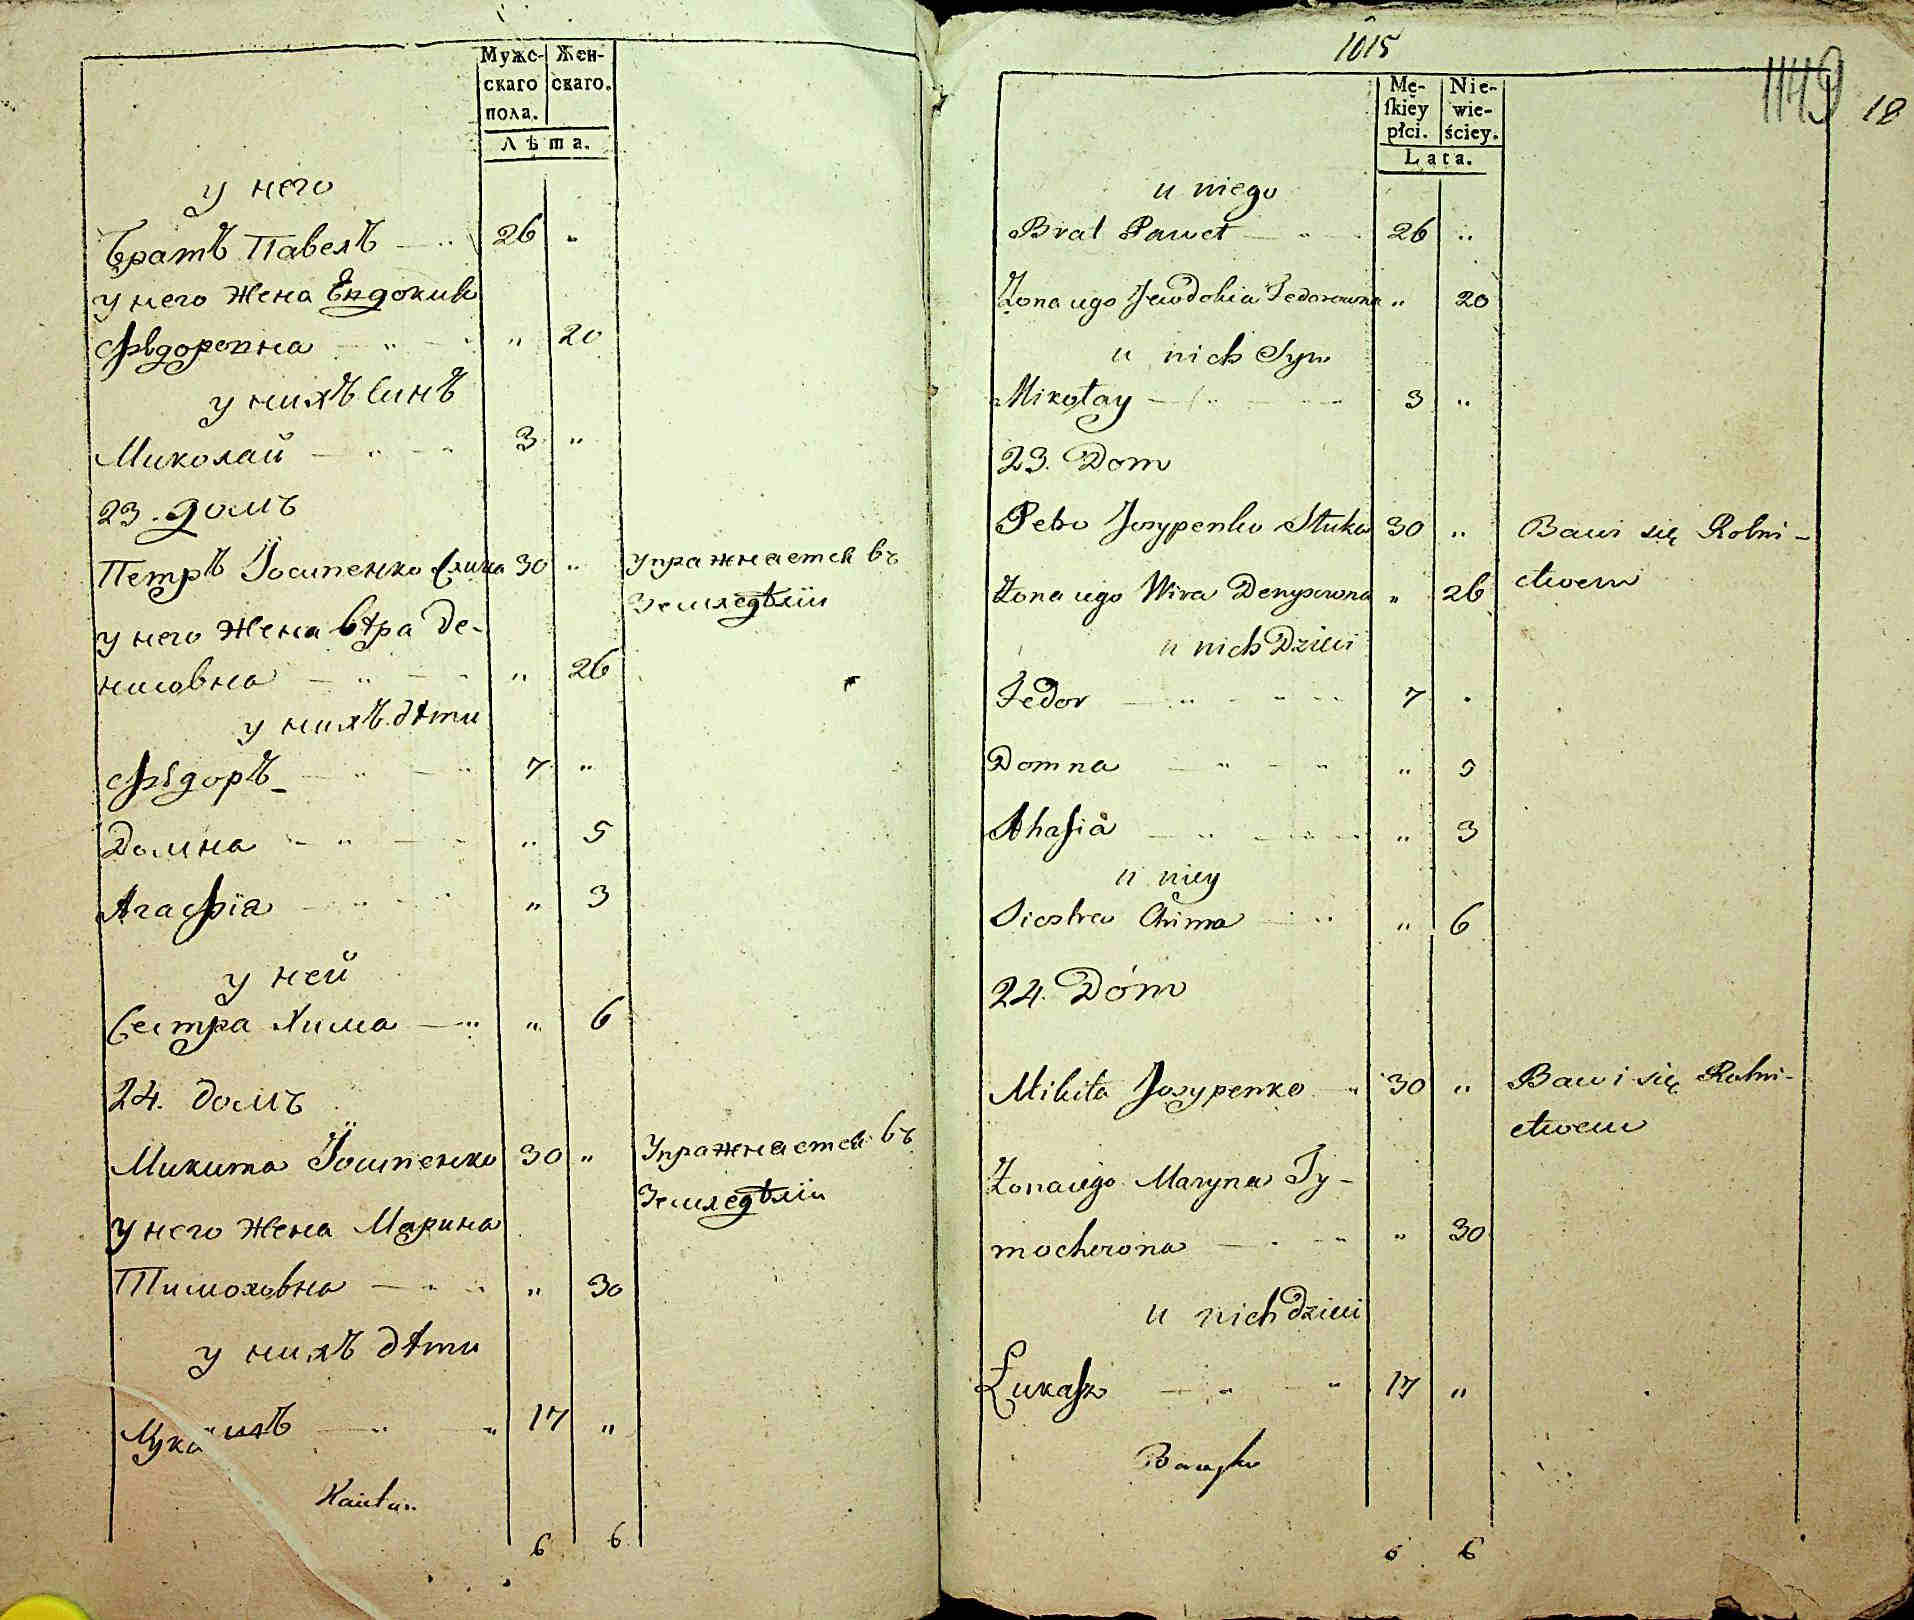 Мужс- Жен-
скаго скаго.
пола.
Лѣта.
у него
Братъ Павелъ — „ 26 „
у него Жена Евдокия
Ѳедоровна — „ — „ 20
у нихъ Синъ
Миколай — „ — „ 3 „
23. домъ
Петръ Іосипенко 30 „ Упражняется въ
Земледѣліи
у него Жена Вѣра Де-
нисовна — „ — „ 26
у нихъ дѣти
Ѳедоръ — „ — „ 7 „
Домна — „ — „ 5
Агафія — „ — „ 3
у ней
Сестра Хима — „ „ 6
24. домъ
Микита Іосипенко 30 „ Упражняется въ
Земледѣліи
у него Жена Марина
Тимоховна — „ „ 30
у нихъ дѣти
Лукашъ — „ — „ 17 „
6 6
1015
1149 18
Mę- Nie-
skiey wie-
płci. ściey.
Lata.
u niego
Brat Paweł — „ — 26 „
Żona iego Jewdokia Fedorowna „ 20
u nich Syn
Mikołay — „ — 3 „
23. Dom
Petro Josypenko Stuka 30 „ Bawi się Rolni-
ctwem
Żona iego Wira Denysowna „ 26
u nich Dzieci
Fedor — „ — „ 7 „
Domna — „ — „ „ 5
Ahafia — „ — „ „ 3
u niey
Siostra Chima — „ „ 6
24. Dom
Mikita Josypenko „ 30 „ Bawi się Rolni-
ctwem
Żona iego Maryna Ty-
mochowna — „ — „ „ 30
u nich dzieci
Łukasz — „ — „ 17 „
6 6